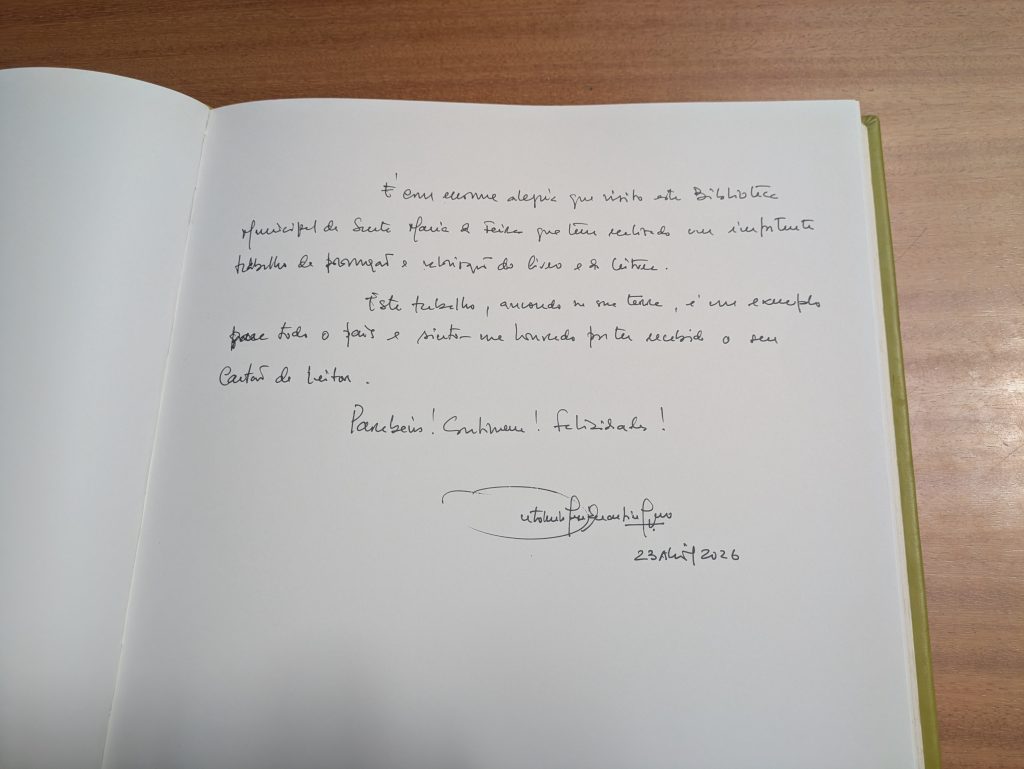 É com enorme alegria que visito esta Biblioteca
Municipal de Santa Maria da Feira que tem realizado um importante
trabalho de promoção e valorização do livro e da leitura.
Este trabalho, ancorado na sua terra, é um exemplo
para todo o país e sinto-me honrado por ter recebido o seu
Cartão de Leitor.
Parabéns! Continuem! Felicidades!
23 Abril 2026